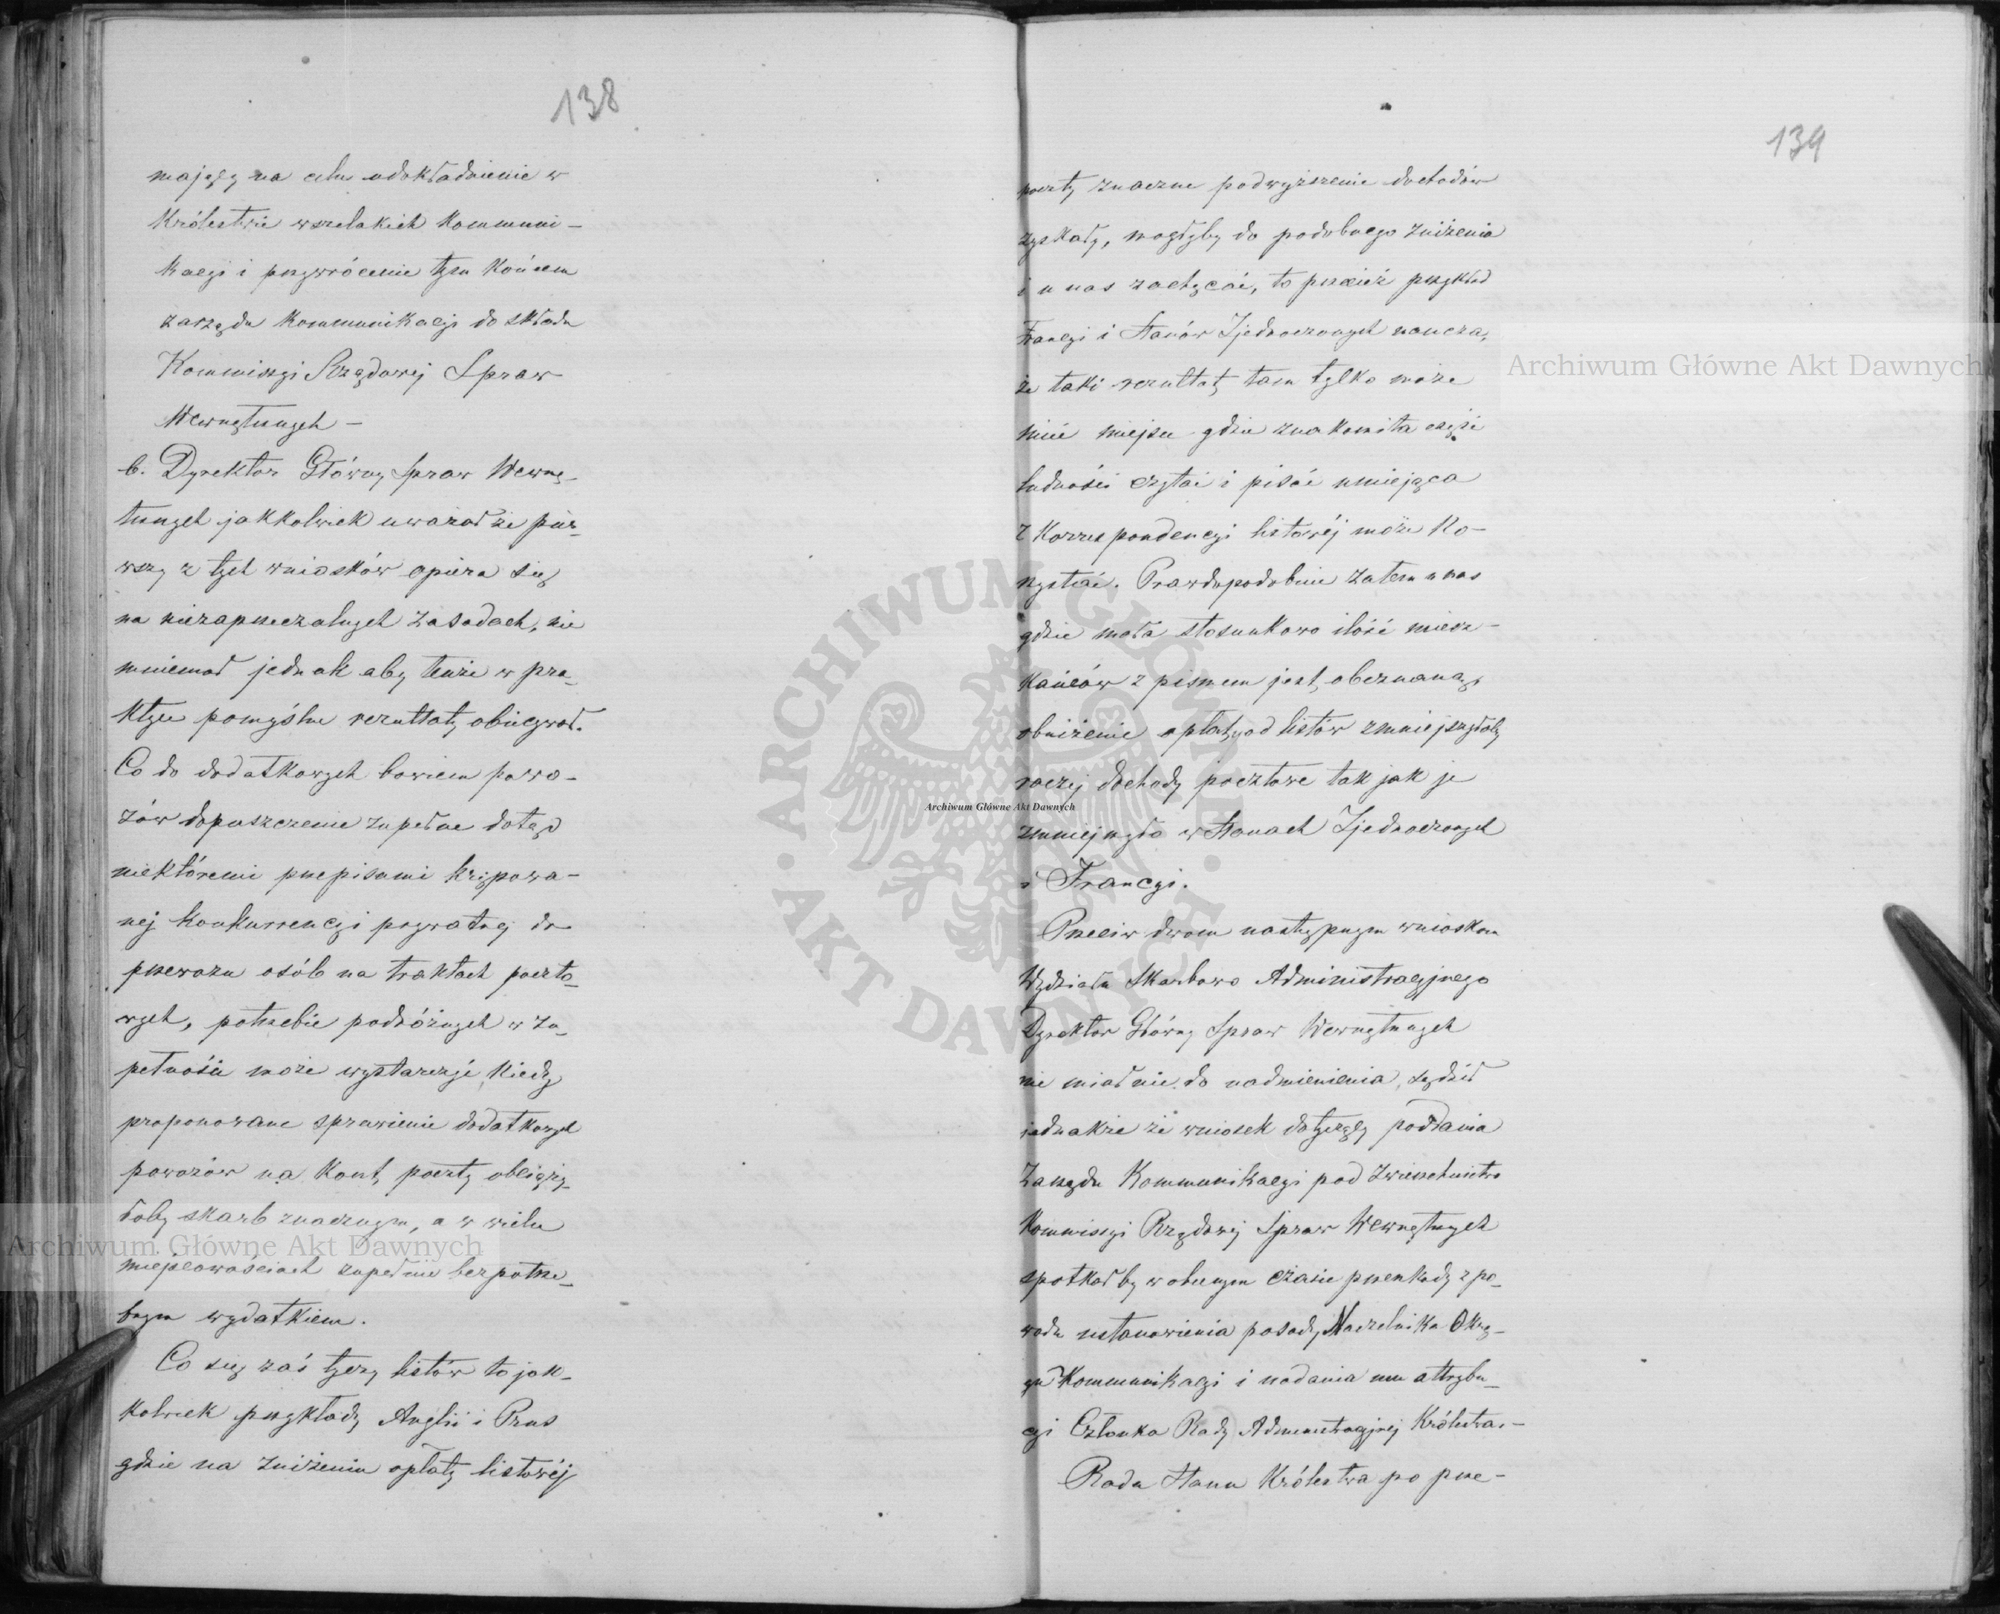 138
mający na celu udokładnienie w
Królestwie wszelakich Kommuni-
kacyi i przywrócenie tym końcem
zarządu Kommunikacji do składu
Kommissyi Rządowej Spraw
Wewnętrznych –
b. Dyrektor Główny Spraw Wewnę-
trznych jakkolwiek uważał że pier-
wszy z tych wniosków opiera się
na niezaprzeczalnych zasadach, nie
mniemał jednak aby tenże w pra-
ktyce pomyślne rezultaty obiecywał.
Co do dodatkowych bowiem powo-
zów dopuszczenie zupełne dotąd
niektóremi przepisami krępowa-
nej konkurrencyi prywatnej do
przewozu osób na traktach poczto-
wych, potrzebie podróżnych w zu-
pełności może wystarczyć, kiedy
proponowane sprawienie dodatkowych
powozów na koszt poczty obciąży-
łoby skarb znacznym, a w wielu
miejscowościach zupełnie bezpotrze-
bnym wydatkiem.
Co się zaś tyczy listów to jak-
kolwiek przykłady Anglii i Prus
gdzie na zniżeniu opłaty listowéj
139
poczty znaczne podwyższenie dochodów
zyskały, mogłyby do podobnego zniżenia
i u nas zachęcać, to przecież przykład
Francyi i Stanów Zjednoczonych naucza,
że taki rezultat tam tylko może
mieć miejsce gdzie znakomita część
ludności czytać i pisać umiejąca
z korrespondencyi listowéj może ko-
rzystać. Prawdopodobnie zatem u nas
gdzie mała stosunkowo ilość miesz-
kańców z pismem jest obeznaną,
obniżenie opłaty od listów zmniejszyłoby
raczej dochody pocztowe tak jak je
zmniejszyło w Stanach Zjednoczonych
i Francyi.
Przeciw dwom następnym wnioskom
Wydziału Skarbowo Administracyjnego
Dyrektor Główny Spraw Wewnętrznych
nie miał nic do nadmienienia, sądził
jednakże że wniosek dotyczący poddania
Zarządu Kommunikacyi pod zwierzchnictwo
Kommissyi Rządowej Spraw Wewnętrznych
spotkałby w obecnym czasie przeszkody z po-
wodu ustanowienia posady Naczelnika Okrę-
gu Kommunikacyi i nadania mu attrybu-
cyi Członka Rady Administracyjnej Królestwa. –
Rada Stanu Królestwa po prze-
Archiwum Główne Akt Dawnych
Archiwum Główne Akt Dawnych
Archiwum Główne Akt Dawnych
ARCHIWUM GŁÓWNE AKT DAWNYCH